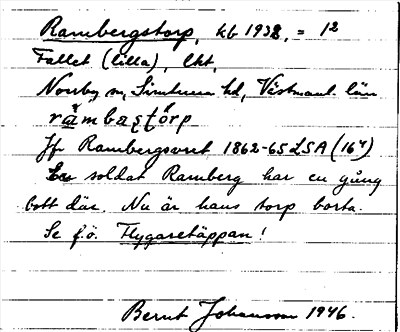 Rambergstorp, kb 1932, = 12
Fallet (lilla), lht,
Norrby sn, Simtuna hd, Västmanl. län
råmbaʂt̩ǫrp
Jfr Rambergsvret 1862-65 LSA (16⁴)
En soldat Ramberg har en gång
bott där. Nu är hans torp borta.
Se f.ö. Flygaretäppan!
Bernt Johansson 1946.